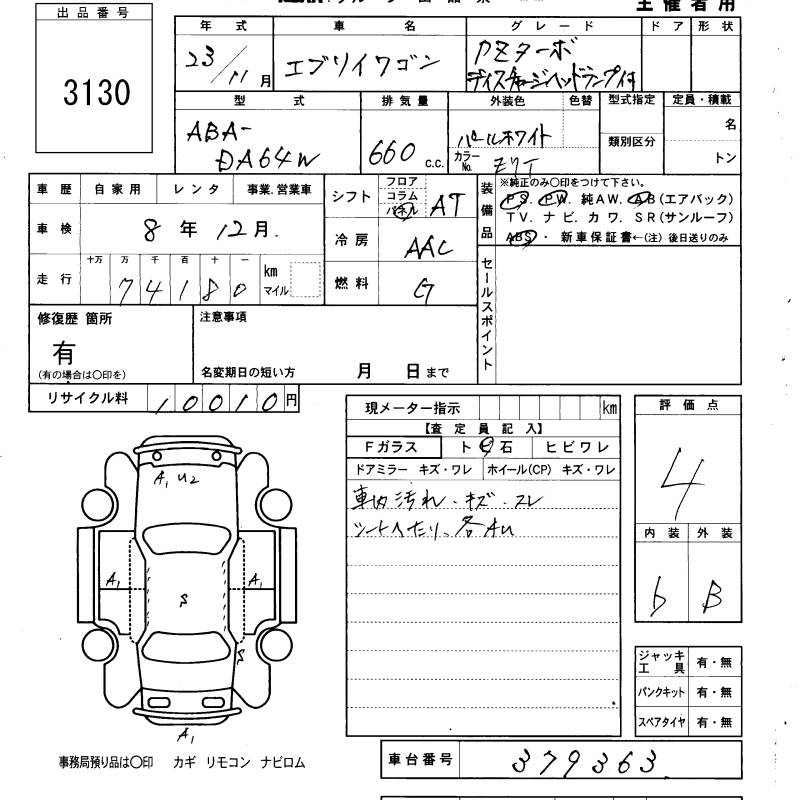 主催者用
出品番号
3130
年式 車名 グレード ドア 形状
23/11月 エブリイワゴン PZターボ
ディスチャージヘッドランプ付
型式 排気量 外装色 色替 型式指定 定員・積載
ABA-
DA64W 660 c.c. パールホワイト 名
カラーNo. Z7T 類別区分 トン
車歴 自家用 レンタ 事業.営業車
車検 8年12月.
走行 十万 万 千 百 十 一 km マイル
74180
シフト フロア コラム パネル AT
冷房 AAC
燃料 G
装備品 ※純正のみ〇印をつけて下さい。
PS. PW. 純AW. AB(エアバック)
TV. ナビ. カワ. SR(サンルーフ)
ABS・ 新車保証書←(注) 後日送りのみ
セールスポイント
修復歴 箇所
有
(有の場合は〇印を)
注意事項
名変期日の短い方 月 日まで
リサイクル料 10010円
現メーター指示 km
【査定員記入】
Fガラス ト ビ 石 ヒビワレ
ドアミラー キズ・ワレ ホイール(CP) キズ・ワレ
車内汚れ・キズ・スレ
シートヘたり、各AU
評価点
4
内装 外装
b B
A1 U2
A1 S A1
S
A1
ジャッキ工具 有・無
パンクキット 有・無
スペアタイヤ 有・無
事務局預り品は〇印 カギ リモコン ナビロム
車台番号 379363